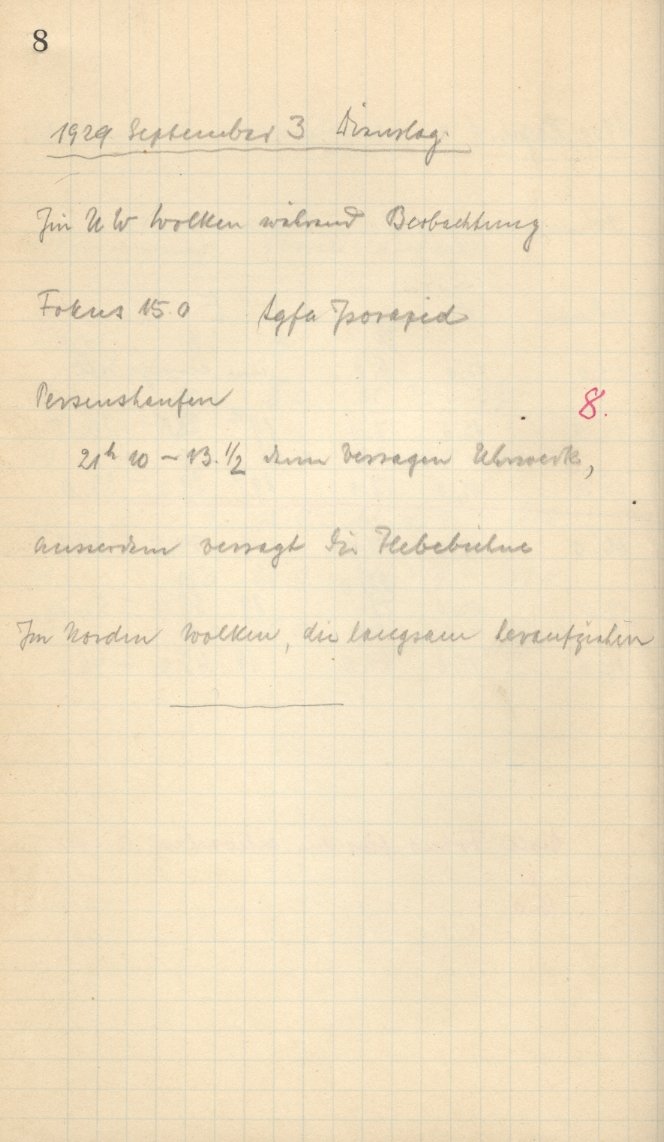 8
1929 September 3 Dienstag.
Im NW Wolken während Beobachtung
Fokus 15.0 Agfa Isorapid
Perseushaufen 8.
21h 10 – 13.1/2 dann Versagen Uhrwerk,
ausserdem versagt die Hebebühne
Im Norden Wolken, die langsam heraufziehen